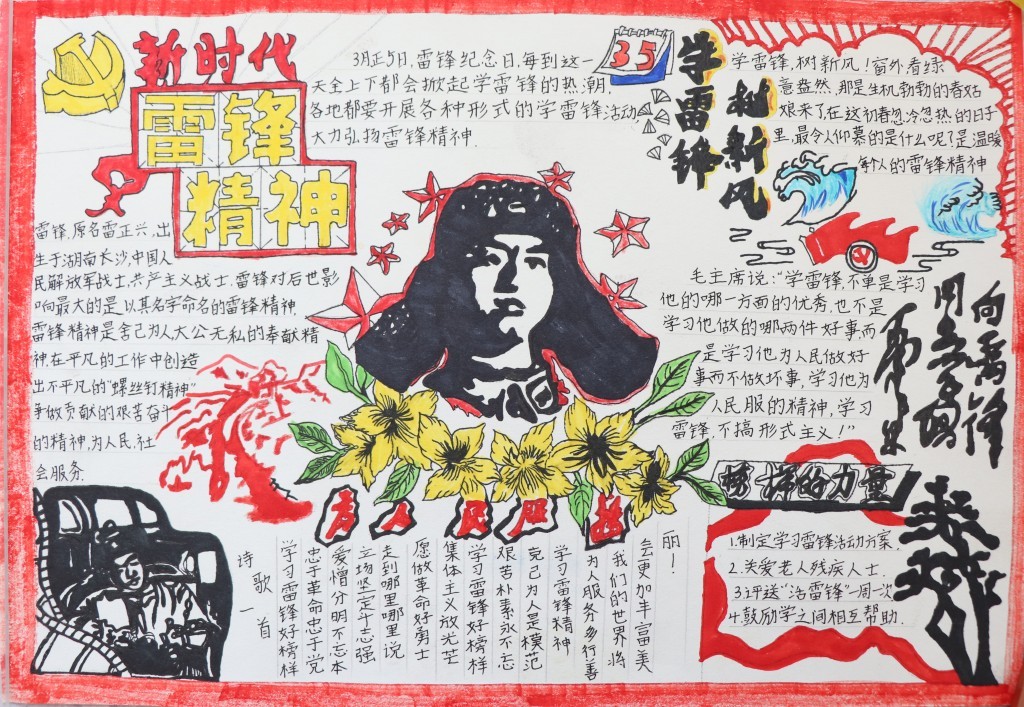 新时代
雷锋
精神
3月正5日,雷锋纪念日,每到这一
天全上下都会掀起学雷锋的热潮.
各地都要开展各种形式的学雷锋活动
大力弘扬雷锋精神.
35
学雷锋
树新风
学雷锋,树新风!窗外看绿
意盎然,那是生机勃勃的春姑
娘来了,在这初春忽冷忽热的日子
里,最令人仰慕的是什么呢?是温暖
每个人的雷锋精神
雷锋,原名雷正兴,出
生于湖南长沙,中国人
民解放军战士,共产主义战士,雷锋对后世影
响最大的是以其名字命名的雷锋精神
雷锋精神是舍己为人大公无私的奉献精
神,在平凡的工作中创造
出不平凡的“螺丝钉精神”
争做贡献的艰苦奋斗
的精神,为人民,社
会服务.
毛主席说:“学雷锋,不单是学习
他的哪一方面的优秀,也不是
学习他做的哪两件好事而
是学习他为人民做好
事而不做坏事,学习他为
人民服的精神,学习
雷锋,不搞形式主义!”
向雷锋
同志学习
毛泽东
为人民服务
诗歌一首
学习雷锋好榜样
忠于革命忠于党
爱憎分明不忘本
立场坚定斗志强
走到哪里哪里说
愿做革命好勇士
集体主义放光芒
学习雷锋好榜样
艰苦朴素永不忘
克己为人是模范
学习雷锋精神
为人服务多行善
我们的世界将
会更加丰富美
丽!
榜样的力量
1.制定学习雷锋活动方案.
2.关爱老人残疾人士.
3.评送“活雷锋”一周一次
4.鼓励学之间相互帮助.